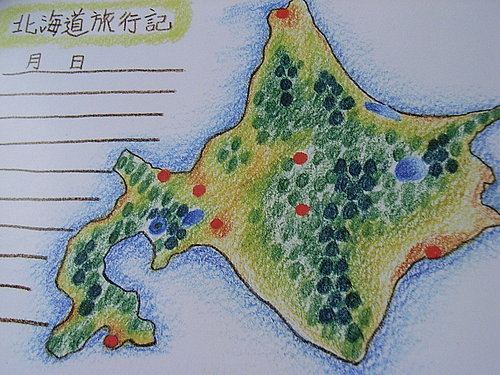 北海道旅行記
月 日